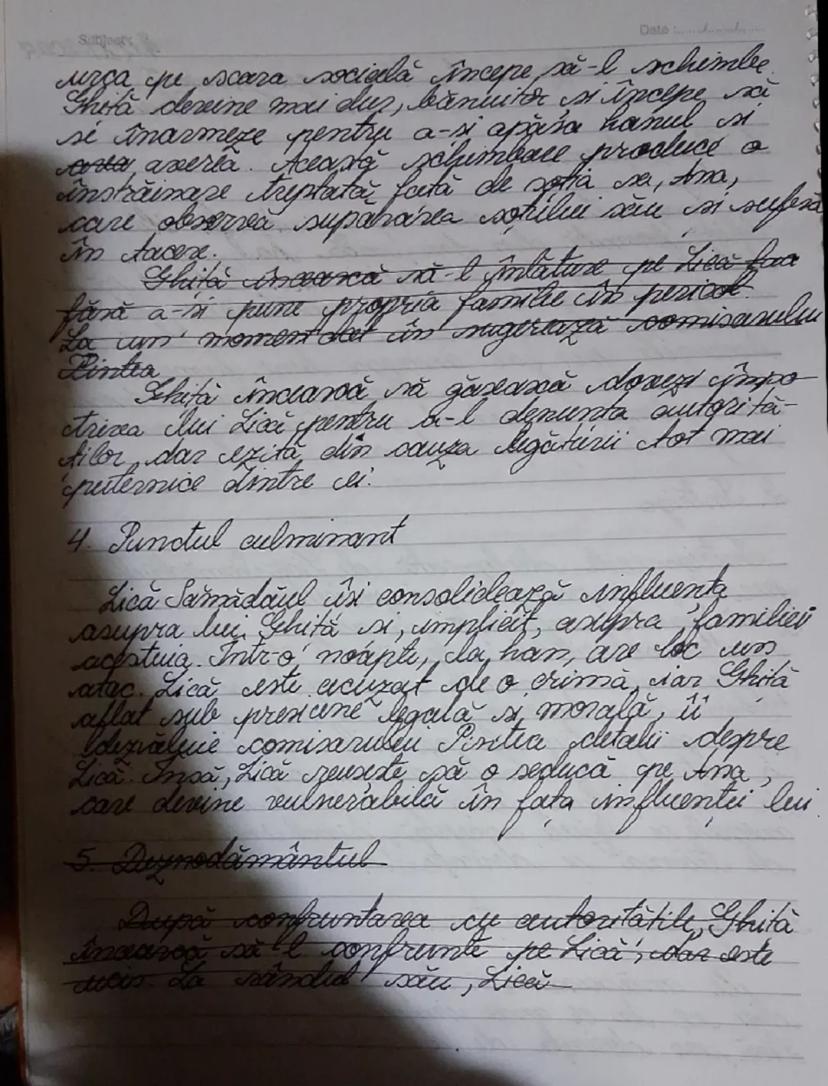 Subject:
Date :
urca pe scara socială începe să-l schimbe.
Ghiță devine mai dur, bănuitor și începe să
se înarmeze pentru a-și apăra hanul și
averea. Această schimbare produce o
înstrăinare treptată față de soția sa, Ana,
care observă supărarea soțului său și suferă
în tăcere.
Ghiță încearcă să-l înlăture pe Lică
fără a-și pune propria familie în pericol.
La un moment dat îi sugerează comisarului
Pintea
Ghiță încearcă să găsească dovezi împo-
triva lui Lică pentru a-l denunța autorită-
ților, dar ezită din cauza legăturii tot mai
puternice dintre ei.
4. Punctul culminant
Lică Sămădăul își consolidează influența
asupra lui Ghiță și, implicit, asupra familiei
acestuia. Într-o noapte, la han, are loc un
atac. Lică este acuzat de o crimă, iar Ghiță
aflat sub presiune legală și morală, îi
dezvăluie comisarului Pintea detalii despre
Lică. Însă, Lică reușește să o seducă pe Ana,
care devine vulnerabilă în fața influenței lui.
5. Deznodământul
După confruntarea cu autoritățile, Ghiță
încearcă să-l confrunte pe Lică, dar este
ucis. La rândul său, Lică